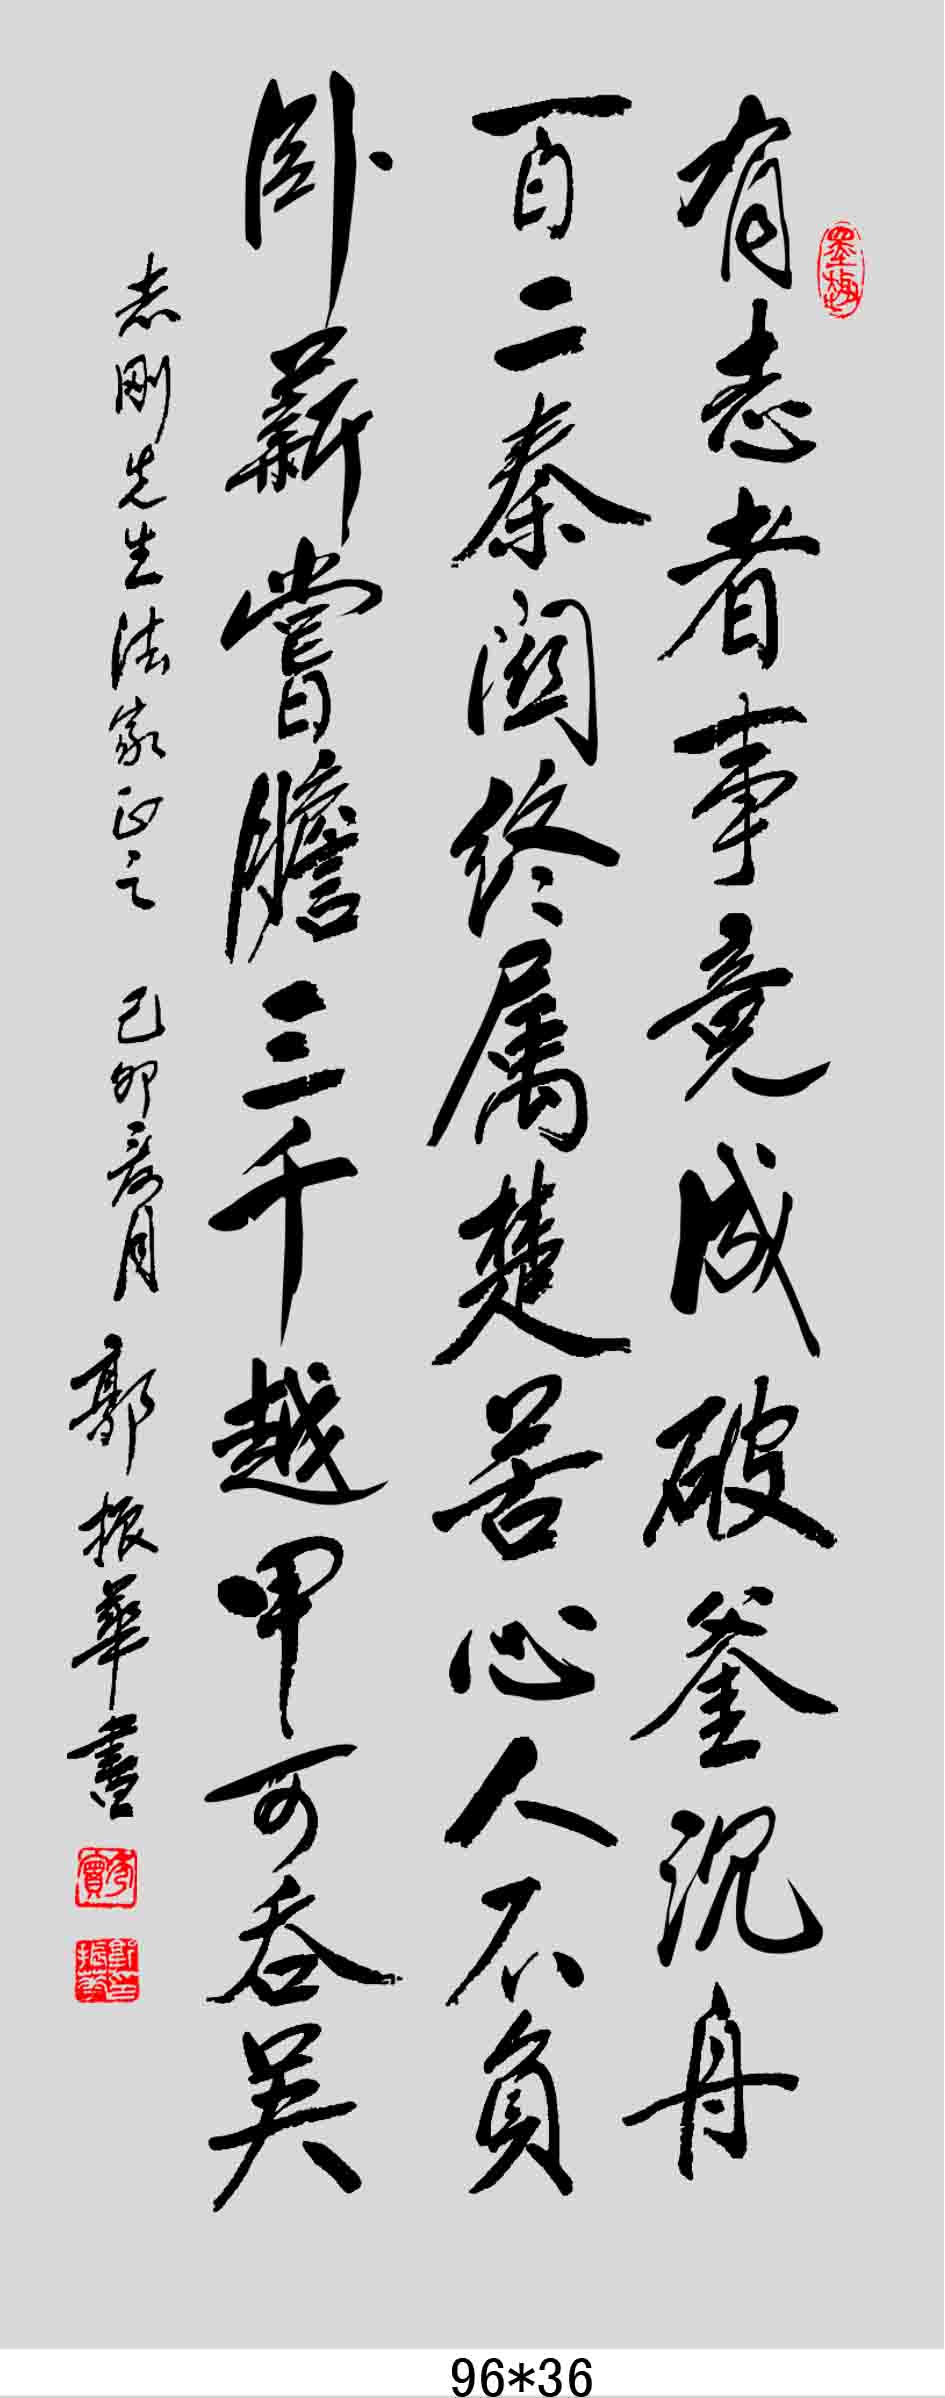 有志者事竟成破釜沉舟
百二秦關终属楚苦心人不負
卧薪嘗膽三千越甲可吞吴
志刚先生法家正之 己卯夏月 郭振華書
墨梅
96*36